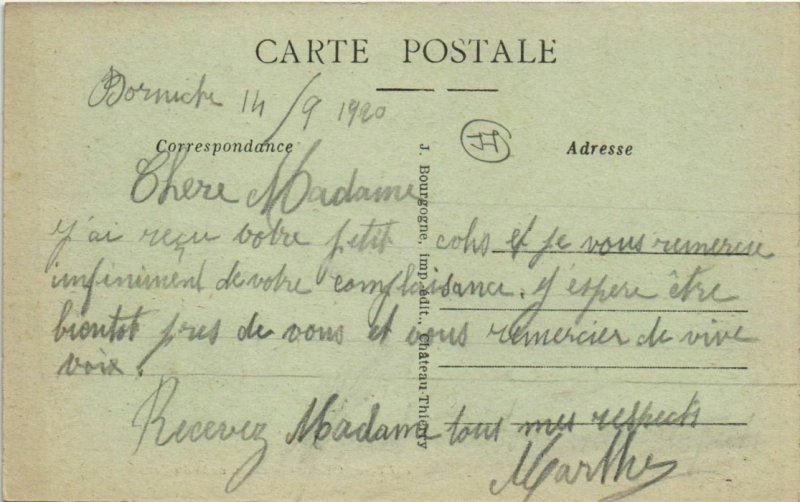 CARTE POSTALE
14/9 1920
Correspondance
Adresse
Chere Madame
J'ai reçu votre petit colis et je vous remercie
infiniment de votre complaisance. J'espere être
bientot pres de vous et vous remercier de vive
voix.
Recevez Madame tous mes respects
Marthe
J. Bourgogne, imp. édit., Château-Thierry
H